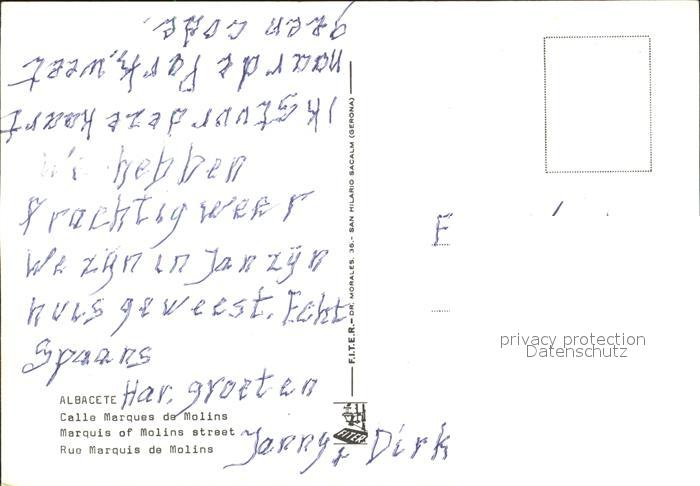 We hebben
Prachtig weer
We zijn in Jan zijn
huis geweest. Echt
Spaans
Har. groeten
Janny + Dirk
Ik stuur deze kaart
naar de Park, weet
geen code.
ALBACETE
Calle Marques de Molins
Marquis of Molins street
Rue Marquis de Molins
F.I.T.E.R.— DR. MORALES, 36.- SAN HILARIO SACALM (GERONA)
FITER
F
privacy protection
Datenschutz